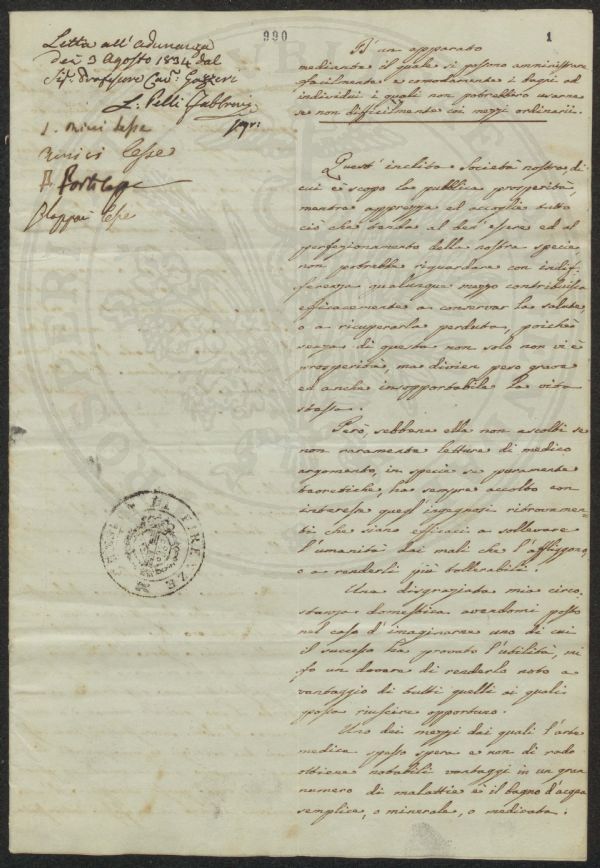 990
1
Letta all' Adunanza
dei 3 Agosto 1834 dal
Sig. Professore Cav. Gazzeri
L. Pelli Fabbroni
Segr:
D'un apparato
mediante il quale si possono amministrare
facilmente e comodamente i bagni ad
individui i quali non potrebbero usarne
se non difficilmente coi mezzi ordinarii.
Quest' inclita Società nostra, di
cui è scopo la pubblica prosperità,
mentre apprezza ed accoglie tutto
ciò che tenda al ben' essere ed al
perfezionamento della nostra specie,
non potrebbe riguardare con indif-
ferenza qualunque mezzo contribuisca
efficacemente a conservar la salute,
o a ricuperarla perduta, poichè
senza di questa non solo non vi è
prosperità, ma divien peso grave
ed anche insopportabile la vita
stessa.
Però, sebbene ella non ascolti se
non raramente letture di medico
argomento, in specie se puramente
teoretiche, ha sempre accolto con
interesse quegl' ingegnosi ritrovamen-
ti che siano efficaci a sollevare
l'umanità dai mali che l'affliggono,
o a renderli più tollerabili.
Una disgraziata mia circo-
stanza domestica avendomi posto
nel caso d'imaginarne uno di cui
il successo ha provato l'utilità, mi
fo un dovere di renderlo noto a
vantaggio di tutti quelli ai quali
possa riuscire opportuno.
Uno dei mezzi dai quali l'arte
medica spesso spera e non di rado
ottiene notabili vantaggi in un gran
numero di malattie è il bagno d'acqua
semplice, o minerale, o medicata.
DI FIRENZE